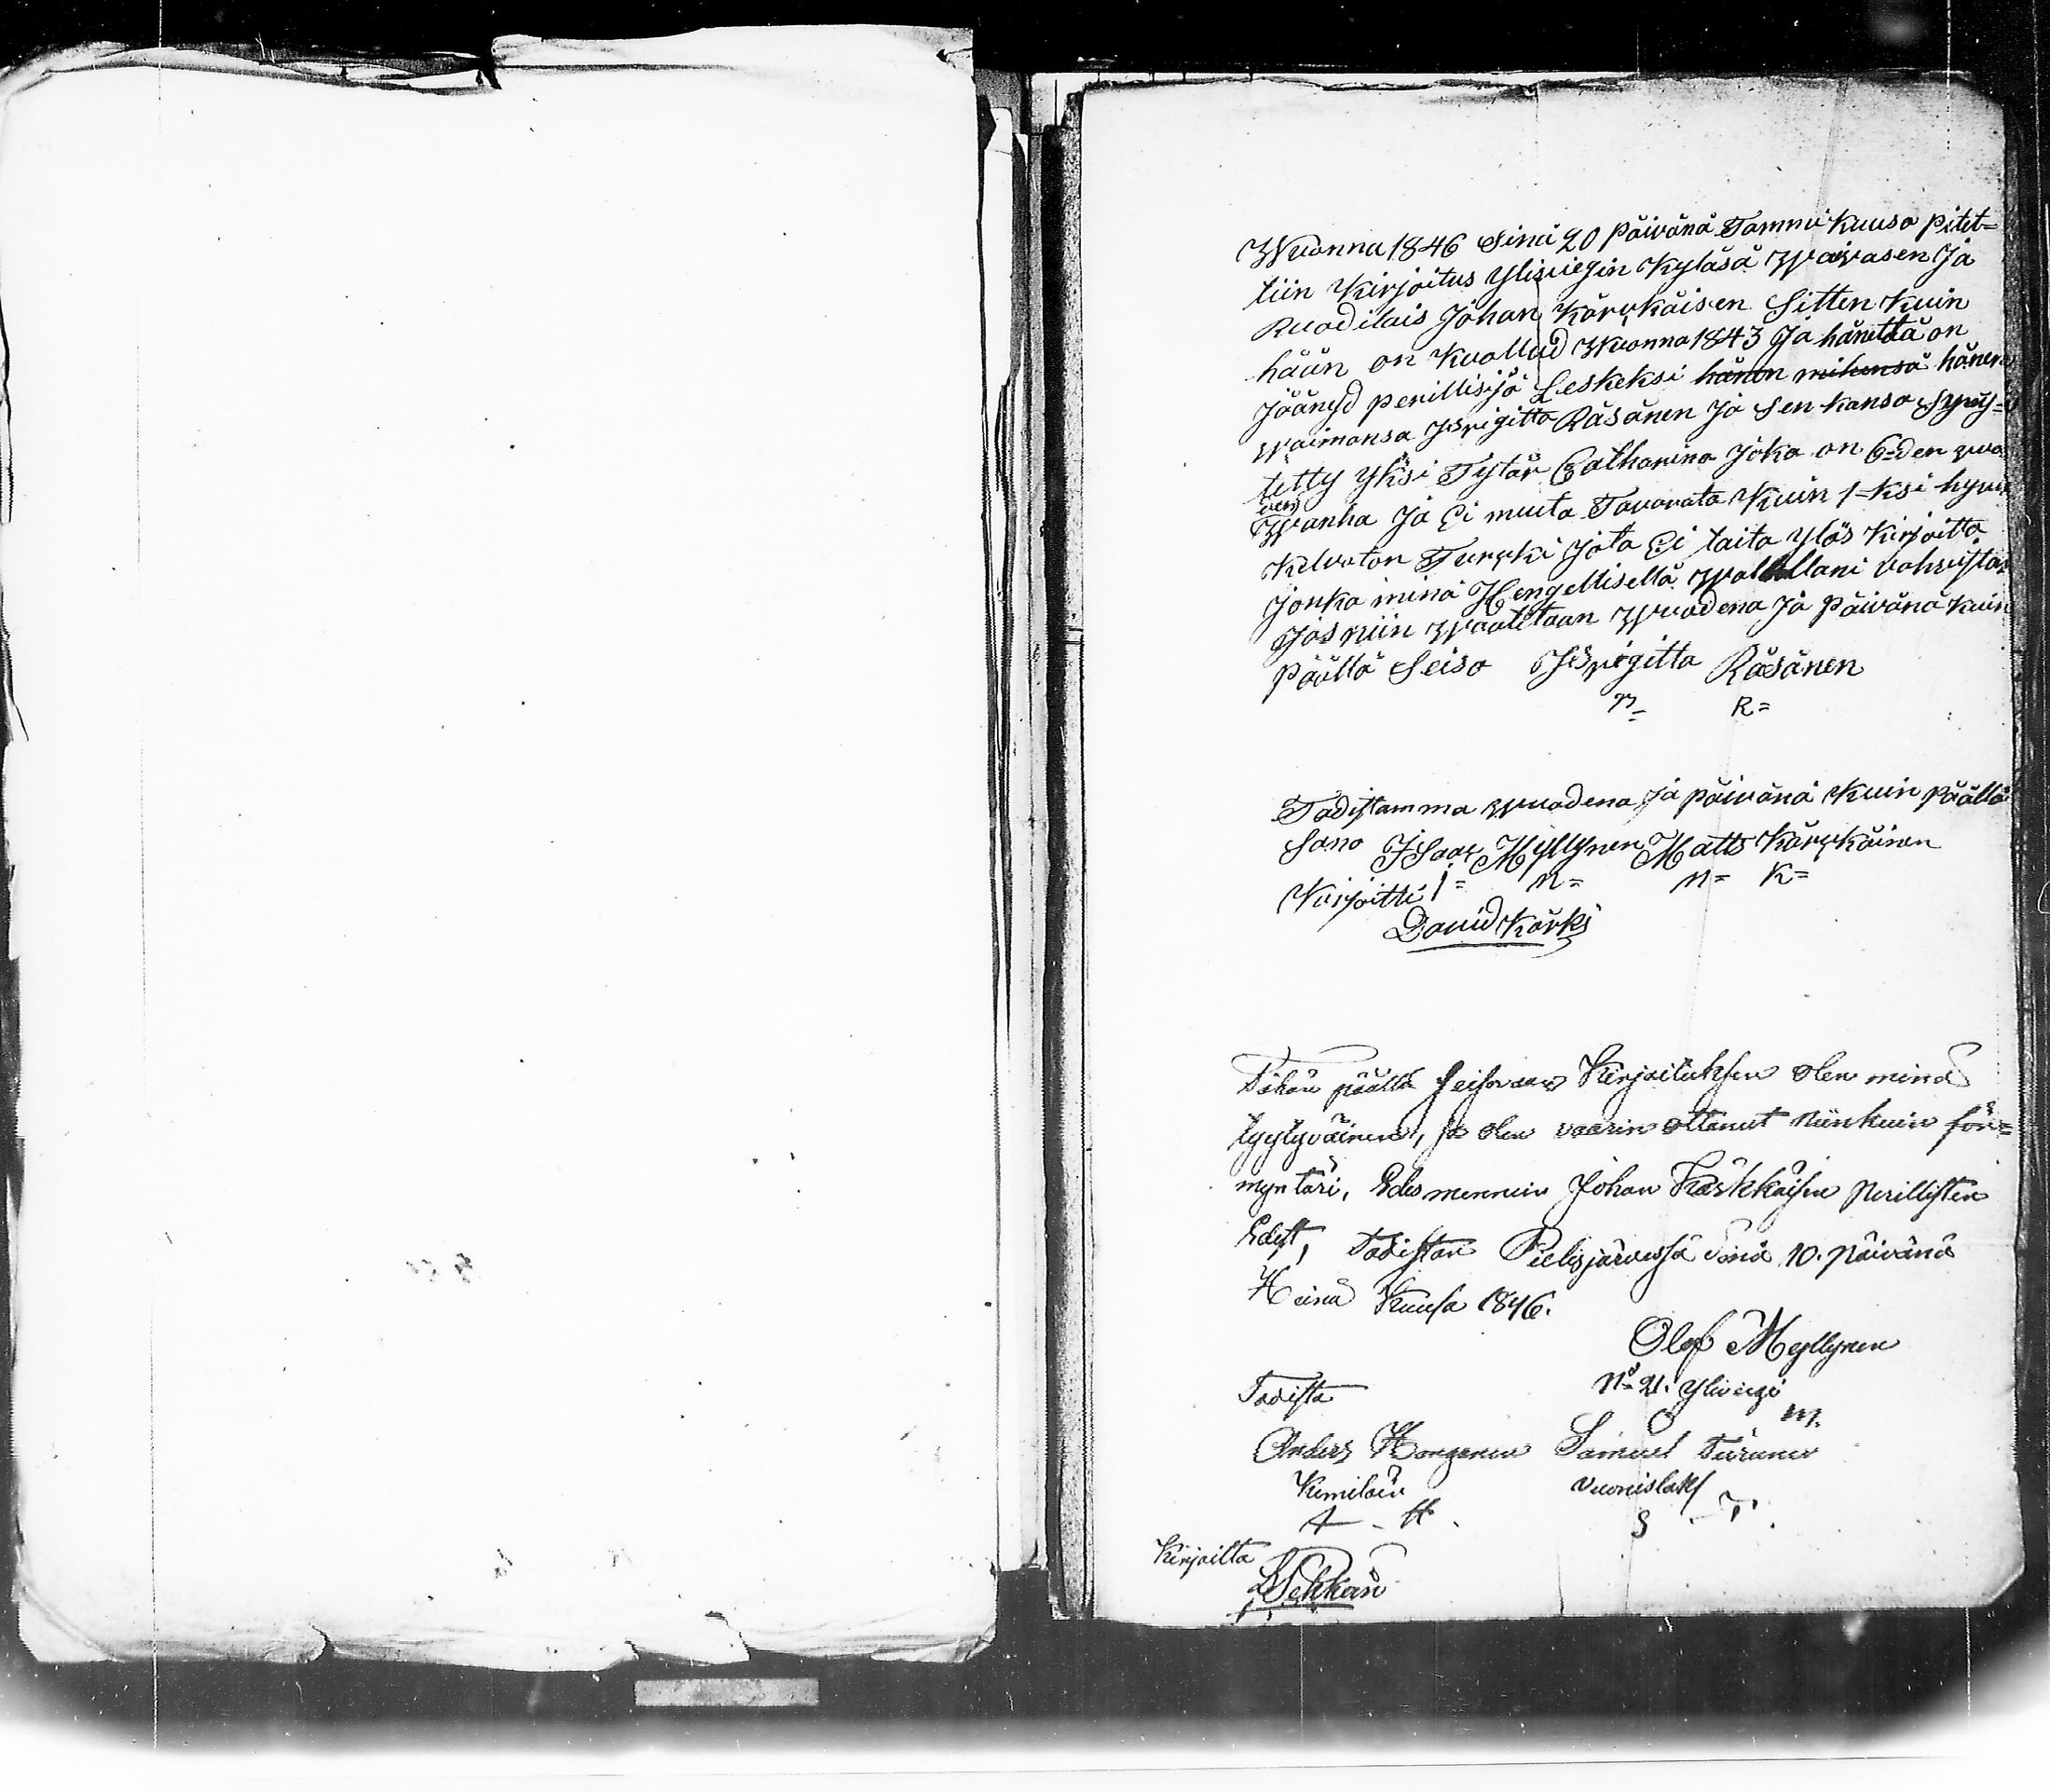 Wuonna 1846 Sinä 20 päivänä Tammi kuusa pitet=
tiin Kirjoitus Yliviegin Kyläsä Waivasen Ja
Ruodilais Johan Kärckäisen Sitten kuin
hään on Kuollud Wuonna 1843 Ja häneltä on
Jäänyd perillisijä Leskeksi hänen mihensä hänen
Waimonsa Brigitta Räsänen Ja Sen kansa Syny=
tetty Yksi Tytär Catharina Joka on 6=den vuo
den
Wanha Ja Ei muuta Tavarata Kuin 1=ksi hywin
Kelvoton Turcki Jota Ei taita Ylös Kirjoitta
Jonka minä Hengellisellä Wallallani vahvistan
Jos niin Waaditaan Wuodena Ja Päivänä kuin
päällä Seiso Brigitta Räsänen
B= R=
Todistamma Wuodena Ja päivänä Kuin päällä
Sano Isaac Myllynen Matts Kärckäinen
Kirjoitti I= M= M= K=
David Kärki
Tähän päällä seisovaan Kirjoituksen olen minä
tyytyväinen, ja olen vaarin ottanut niinkuin för=
myntäri, Edesmennein Johan Kärkkäisen perillisten
Edest, Todistan Pielisjärvessä sinä 10. päivänä
Heinä Kuusa 1846.
Olof Myllynen
No 21. Yliviegi
O M.
Todista
Anders Hongonen Samuel Turunen
Kimilain Vuonislaks
A - H. S - T.
Kirjoitta